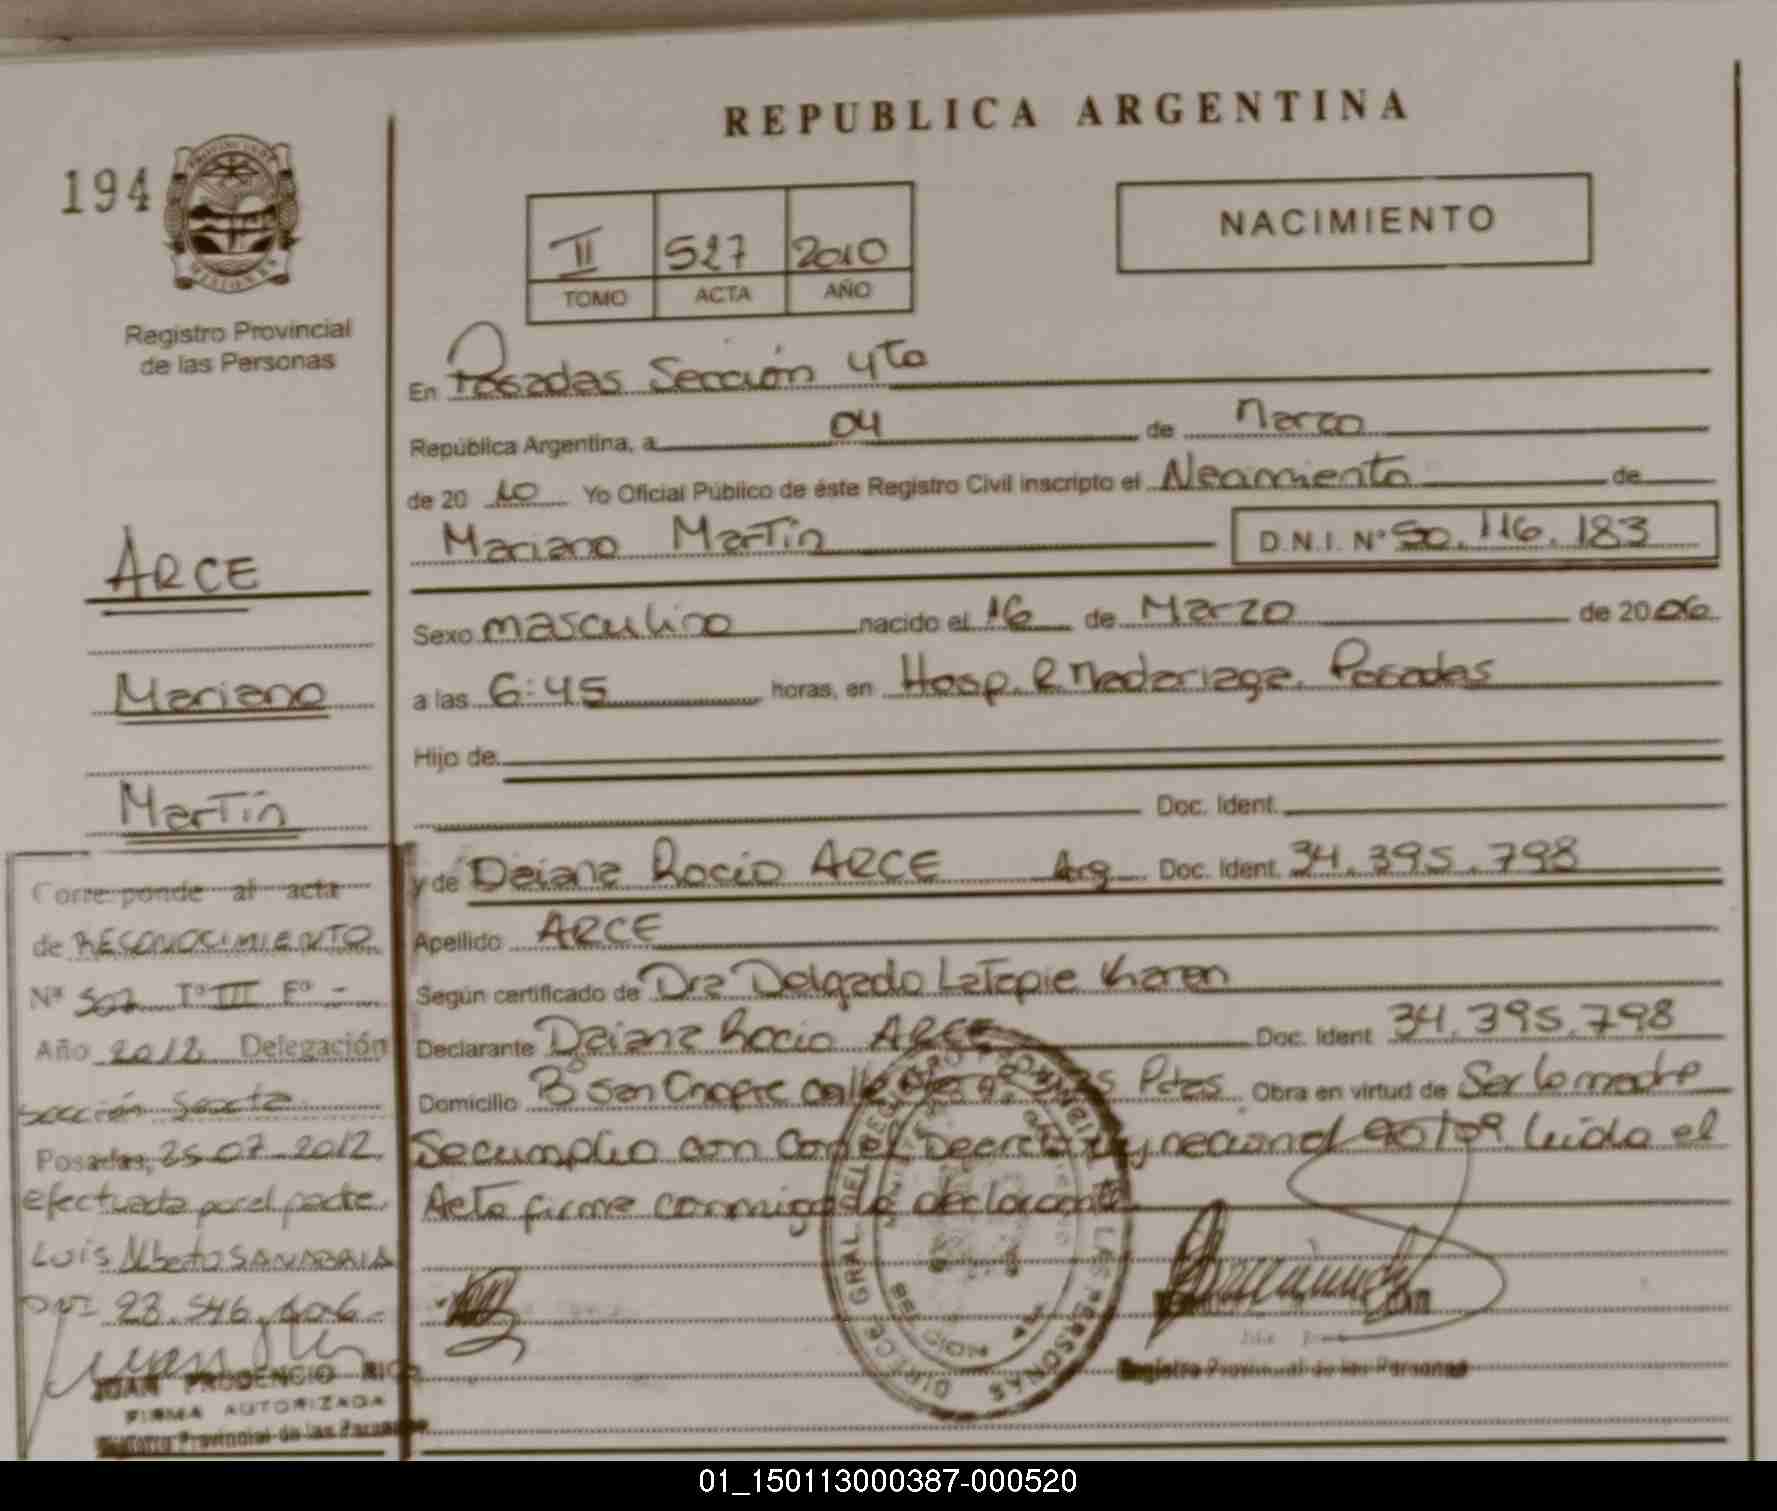 REPUBLICA ARGENTINA
194
PROVINCIA DE
MISIONES
Registro Provincial
de las Personas
II 527 2010
TOMO ACTA AÑO
NACIMIENTO
En Posadas Sección 4ta
República Argentina, a 04 de Marzo
de 2010 Yo Oficial Público de éste Registro Civil inscripto el Nacimiento de
Mariano Martín D.N.I. Nº 50.116.183
Sexo masculino nacido el 16 de Marzo de 2006
a las 6:45 horas, en Hosp. R. Madariaga. Posadas
Hijo de
Doc. Ident.
y de Daiana Rocio ARCE Arg Doc. Ident. 34.395.798
Apellido ARCE
Según certificado de Dra Delgado Latapie Karen
Declarante Daiana Rocio ARCE Doc. Ident 34.395.798
Domicilio Bº San calle Pdas Obra en virtud de Ser la madre
Se cumplio con Decreto nacional leida el
Acta firma conmigo la declarante
ARCE
Mariano
Martín
Corresponde al acta
de RECONOCIMIENTO
Nª 507 Tº III Fº -
Año 2012 Delegación
sección Sexta
Posadas, 25-07-2012
efectuada por el padre
Luis Alberto SANABRIA
DNI 23.546.606-
JUAN PRUDENCIO RIOS
FIRMA AUTORIZADA
Registro Provincial de las Personas
DIRECC. GRAL. DEL REGISTRO PROVINCIAL DE LAS PERSONAS
MISIONES
Registro Provincial de las Personas
01_150113000387-000520